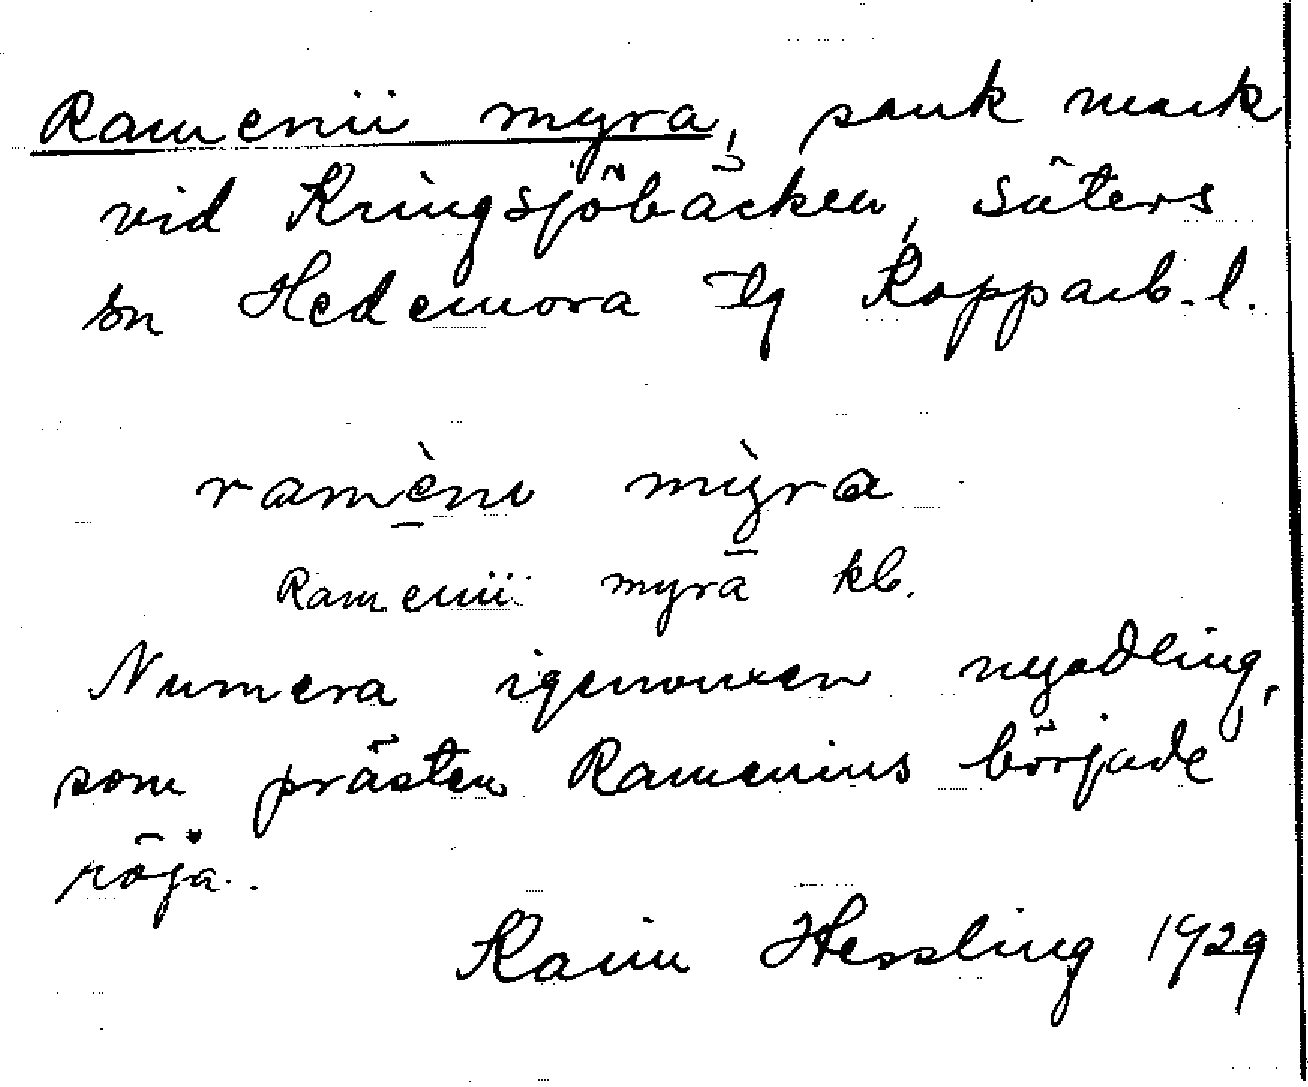 Ramenii myra, sank mark
vid Kringsjöbäcken, Säters
sn Hedemora tg Kopparb. l.
ramèni mỳra
Ramenii myra kb.
Numera igenvuxen nyodling,
som prästen Ramenius började
röja.
Karin Hessling 1929